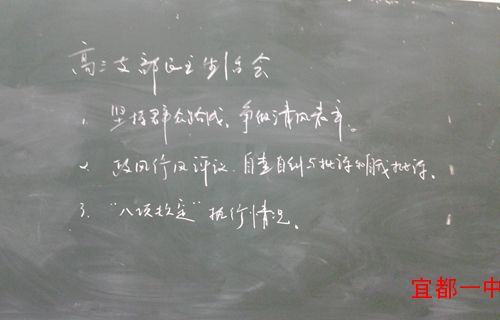 高三支部民主生活会
1. 坚持群众路线、争做清风表率。
2. 政风行风评议、自查自纠与批评和自我批评。
3. "八项规定"执行情况。
宜都一中